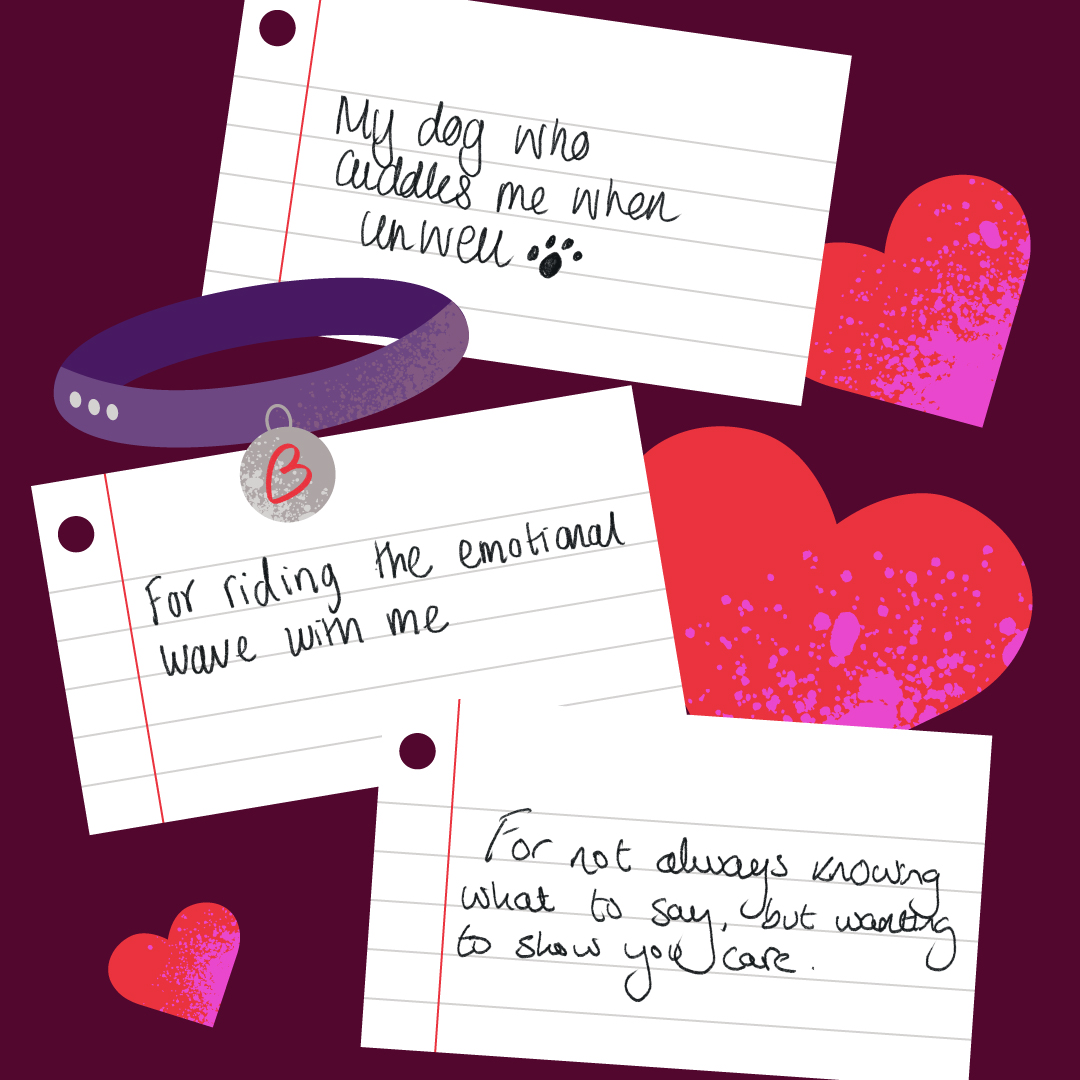 My dog who
cuddles me when
unwell
B
For riding the emotional
wave with me
For not always knowing
what to say, but wanting
to show you care.